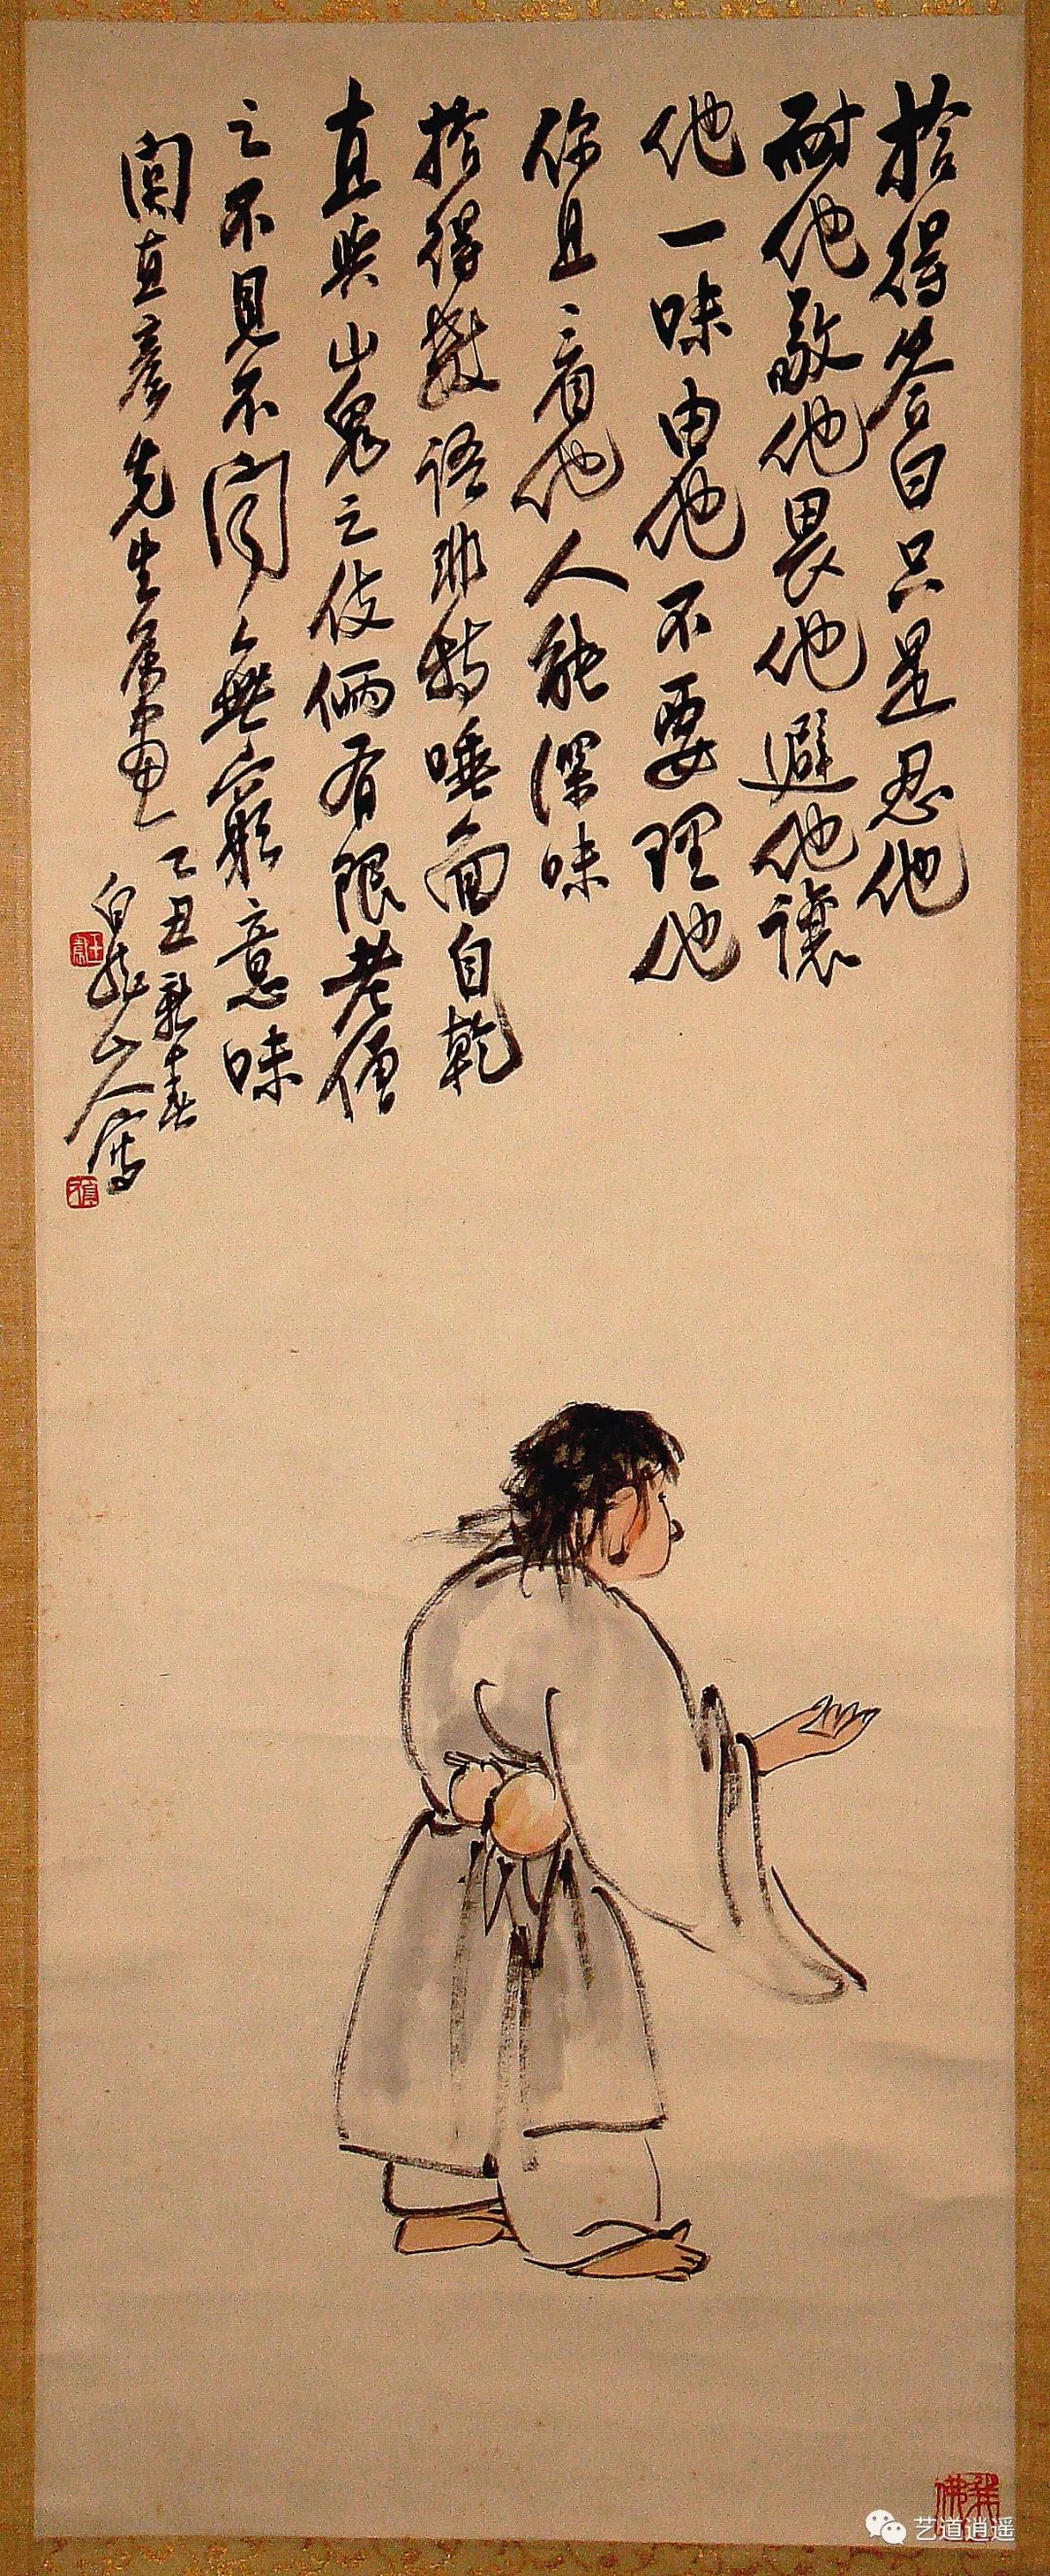 拾得答曰只是忍他
耐他敬他畏他避他讓
他一味由他不要理他
你且看他人能深味
拾得數語非特唾面自乾
直與山鬼之伎倆有限老僧
之不見不聞無窮意味
関直彦先生属畫
乙丑新春
白龍山人寫
王震
艺道逍遥